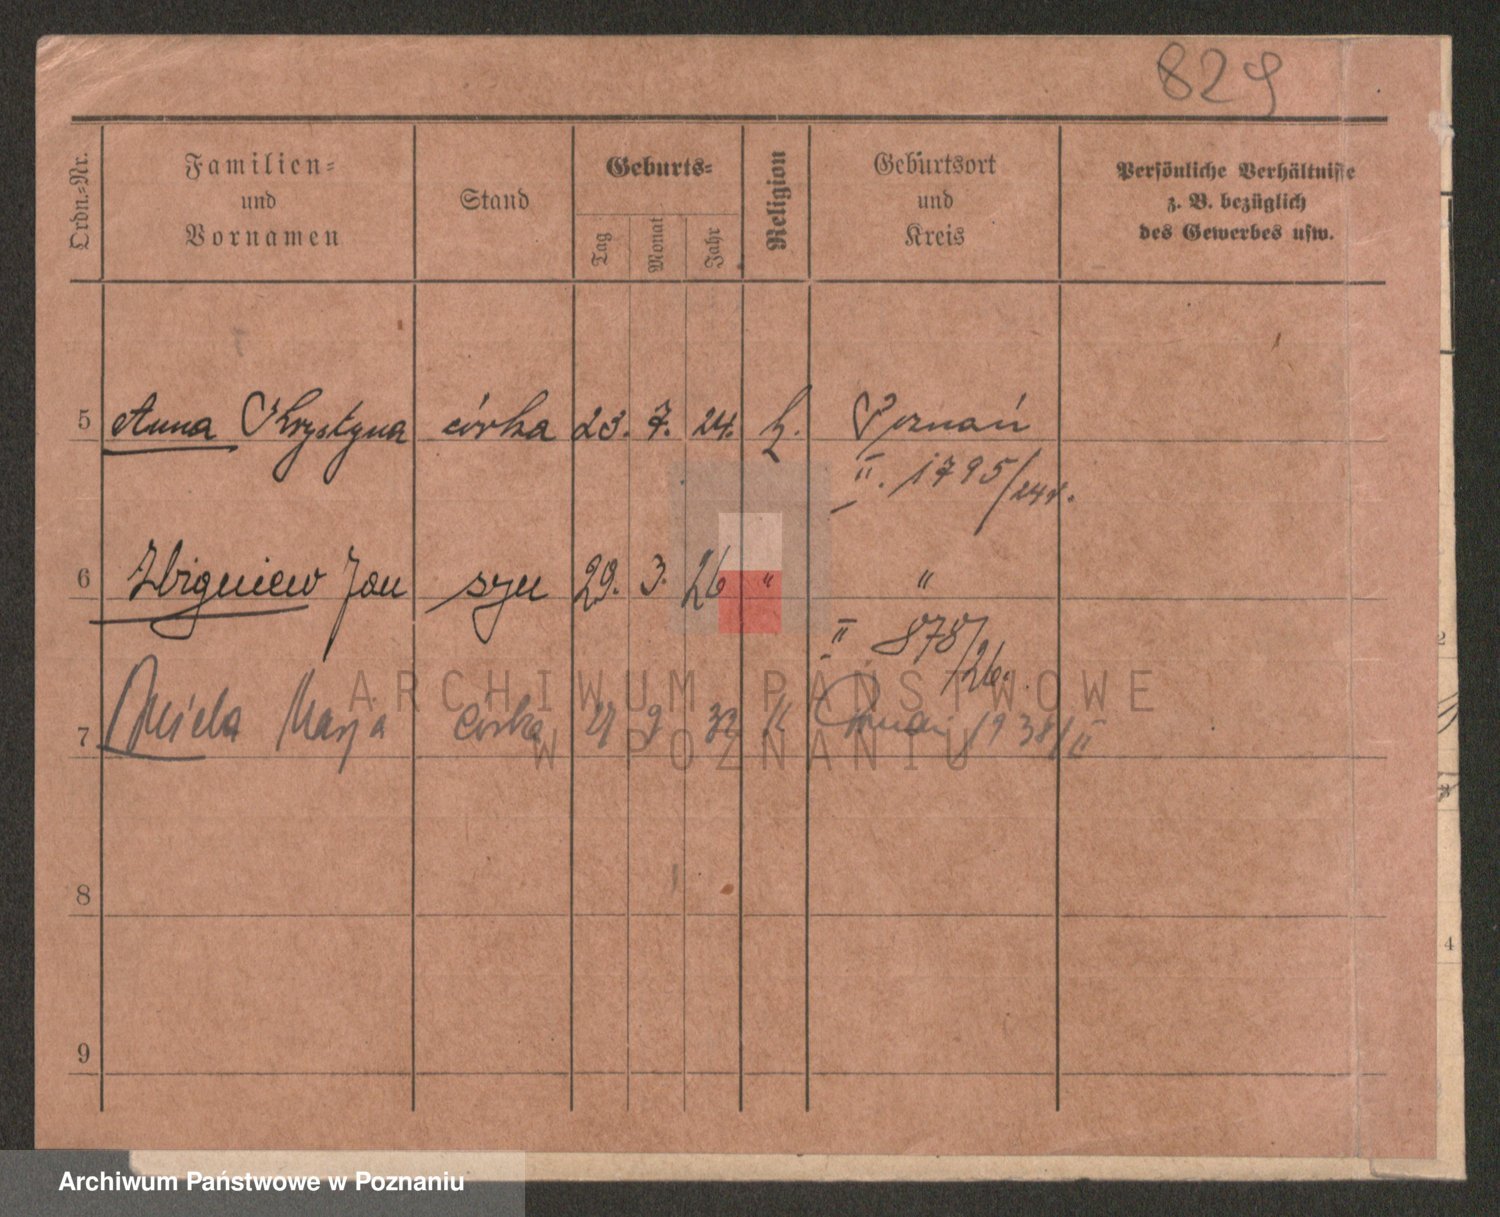 829
Ordn.-Nr.
Familien-
und
Vornamen
Stand
Geburts-
Tag
Monat
Jahr
Religion
Geburtsort
und
Kreis
Persönliche Verhältnisse
z. B. bezüglich
des Gewerbes usw.
5 Anna Krystyna córka 23. 7. 24. k. Poznań
II. 1795/24 r.
6 Zbigniew Jan syn 29. 3. 26 " "
II 878/26.
7 Maria córka 9 32 1938/II
8
9
2
4
ARCHIWUM PAŃSTWOWE
W POZNANIU
Archiwum Państwowe w Poznaniu